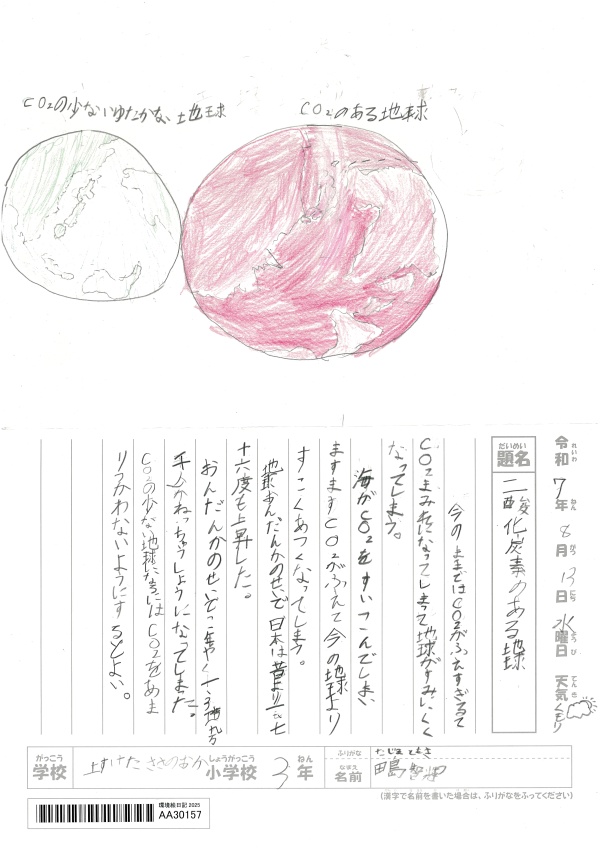 CO₂の少ないゆたかな地球
CO₂のある地球
令和7年8月13日水曜日 天気くもり
れいわ ねん がつ にち ようび てんき
だいめい
題名
二酸化炭素のある地球
今のままではCO₂がふえすぎて
CO₂まみれになってしまって地球がすみにくく
なってしまう。
海がCO₂をすいこんでしまい
ますますCO₂がふえて今の地球より
すごくあつくなってしまう。
地球おんだんかのせいで日本は昔より一・七
十六度も上昇した。
おんだんかのせいで一年やく
人がねっちゅうしょうになってしまた。
CO₂の少ない地球にするにはCO₂をあま
りつかわないようにするとよい。
がっこう
学校
ささのおか
しょうがっこう
小学校
3
ねん
年
ふりがな
なまえ
名前
田島
(漢字で名前を書いた場合は、ふりがなをふってください)
環境絵日記 2025
AA30157